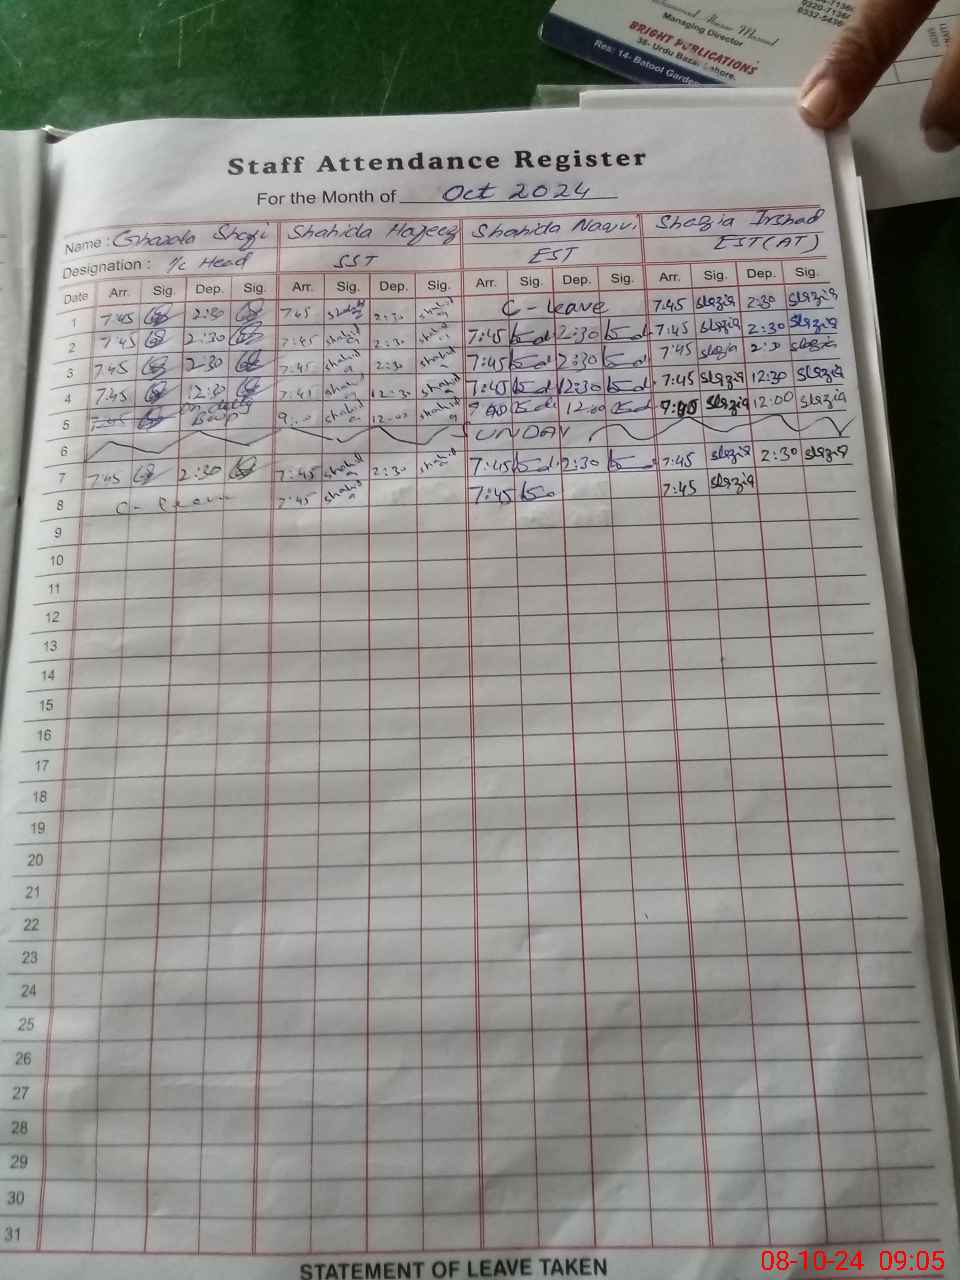 Managing Director
BRIGHT PUBLICATIONS
38- Urdu Bazar Lahore.
Res: 14- Batool Garden
Staff Attendance Register
For the Month of Oct 2024
Name : Ghazala Shafi Shahida Hafeez Shahida Naqvi Shazia Irshad
Designation : I/c Head SST EST EST(AT)
Date Arr. Sig. Dep. Sig. Arr. Sig. Dep. Sig. Arr. Sig. Dep. Sig. Arr. Sig. Dep. Sig.
1 7:45 2:30 7:45 shahida 2:30 shahida C-leave 7:45 shazia 2:30 shazia
2 7:45 2:30 7:45 shahida 2:30 shahida 7:45 2:30 7:45 shazia 2:30 shazia
3 7:45 2:30 7:45 shahida 2:30 shahida 7:45 2:30 7:45 shazia 2:30 shazia
4 7:45 12:30 7:45 shahida 12:30 shahida 7:45 12:30 7:45 shazia 12:30 shazia
5 shahida 12:00 shahida 12:00 shazia 12:00 shazia
6 SUNDAY
7 7:45 2:30 7:45 shahida 2:30 shahida 7:45 2:30 7:45 shazia 2:30 shazia
8 C-leave 7:45 shahida 7:45 7:45 shazia
9
10
11
12
13
14
15
16
17
18
19
20
21
22
23
24
25
26
27
28
29
30
31
STATEMENT OF LEAVE TAKEN
08-10-24 09:05